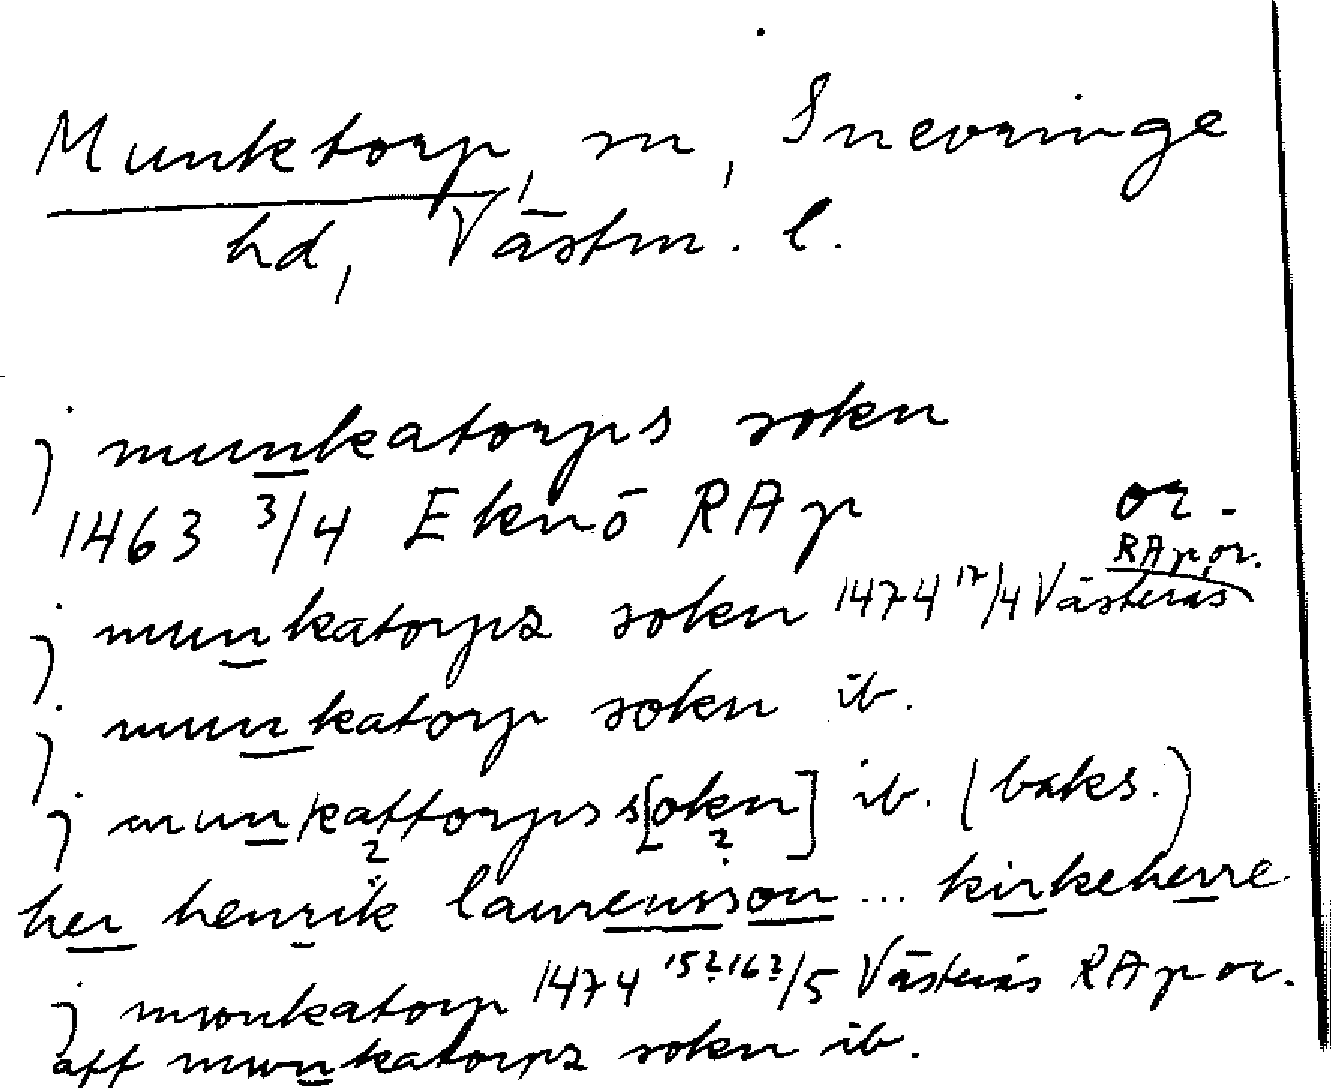 Munktorp, sn, Snevringe
hd, Västm. l.
j munkatorps sokn
1463 3/4 Eknö RAp or.
j munkatorps sokn 1474 17/4 Västerås RAp or.
j munkatorp sokn ib.
j munkattorps s[okn] ib. (baks.)
her henrik laurensson ... kirkeherre
j mwnkatorp 1474 15?16?/5 Västerås RAp or.
aff mwnkatorps sokn ib.